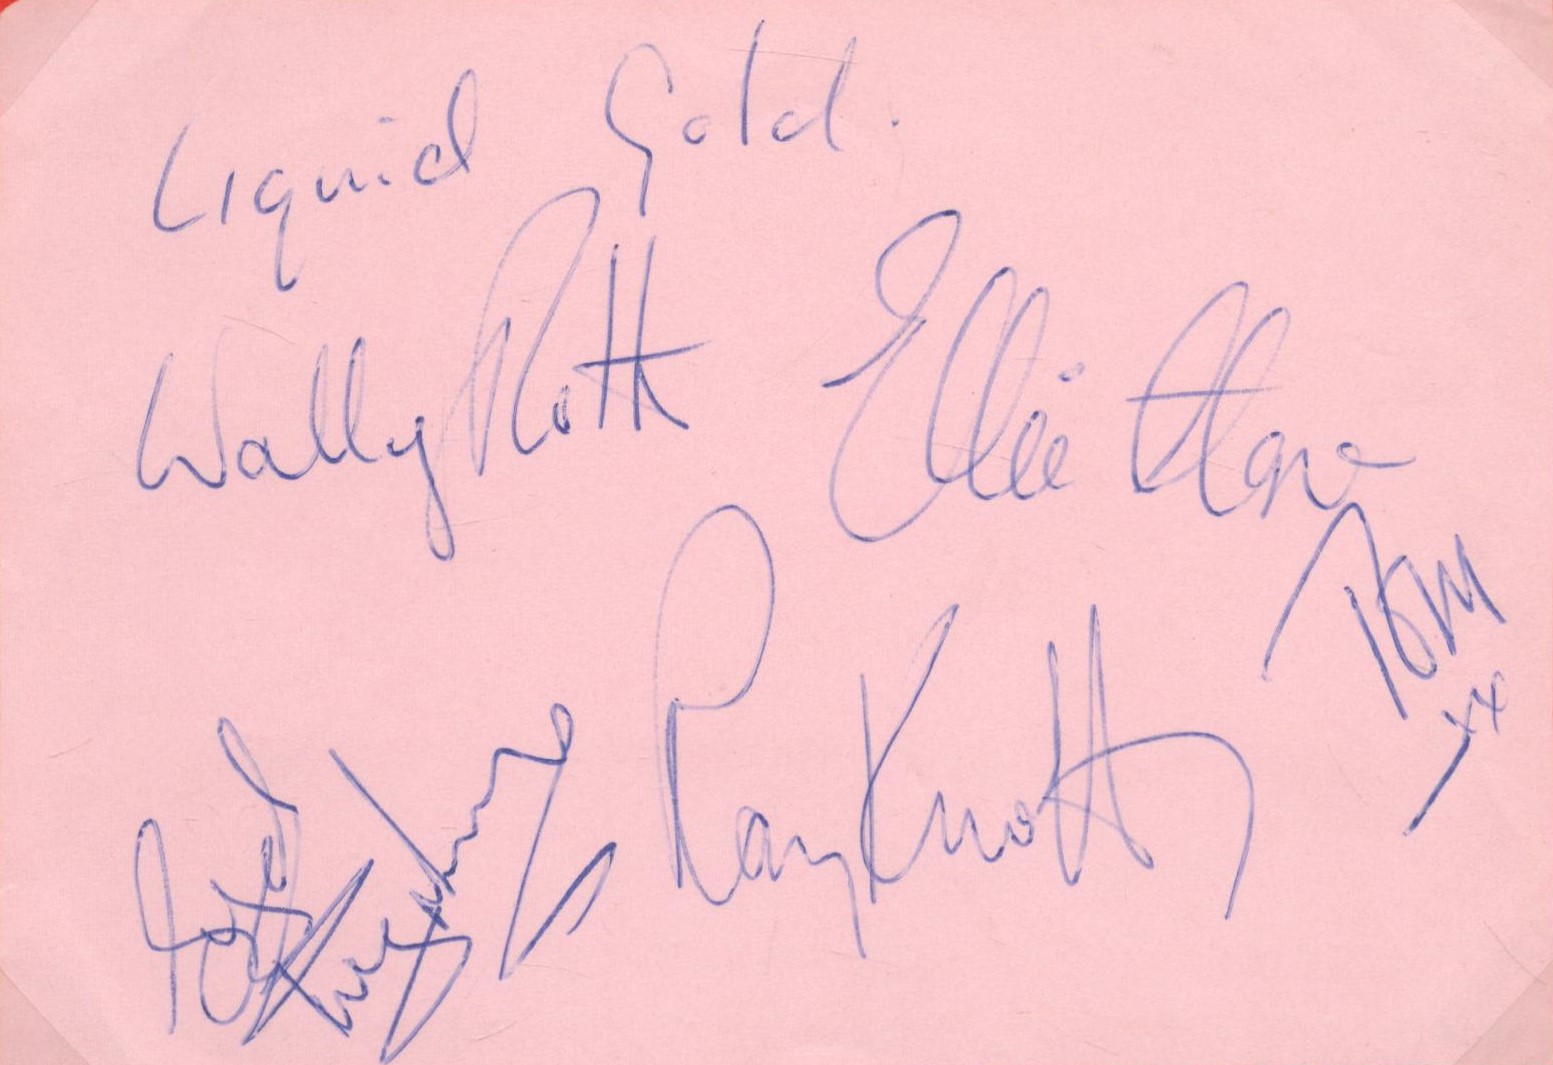 Liquid Gold.
Wally Roth
Ellie Hope
Tom
xx
Ray Knott